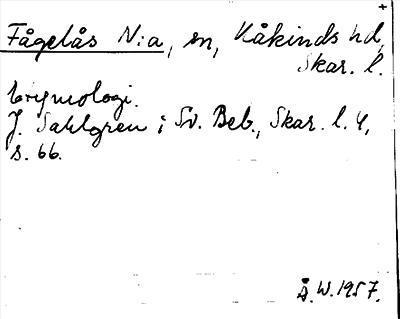 Fågelås N:a, sn, Kåkinds hd,
Skar. l.
Etymologi.
J. Sahlgren i Sv. Beb., Skar. l. 4,
s. 66.
Å.W.1957.